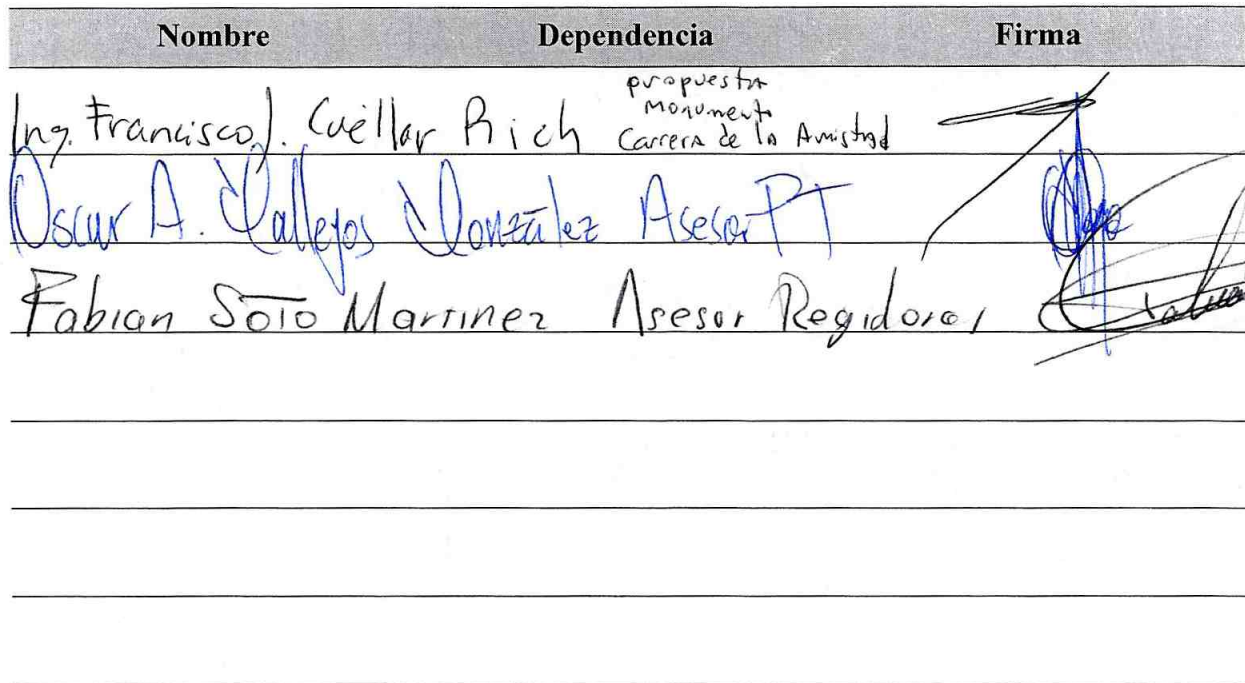 Nombre Dependencia Firma
Ing. Francisco J. Cuéllar Rich propuesta
Monumento
Carrera de la Amistad
Oscar A. Vallejos González Asesor PT
Fabian Soto Martinez Asesor Regidores